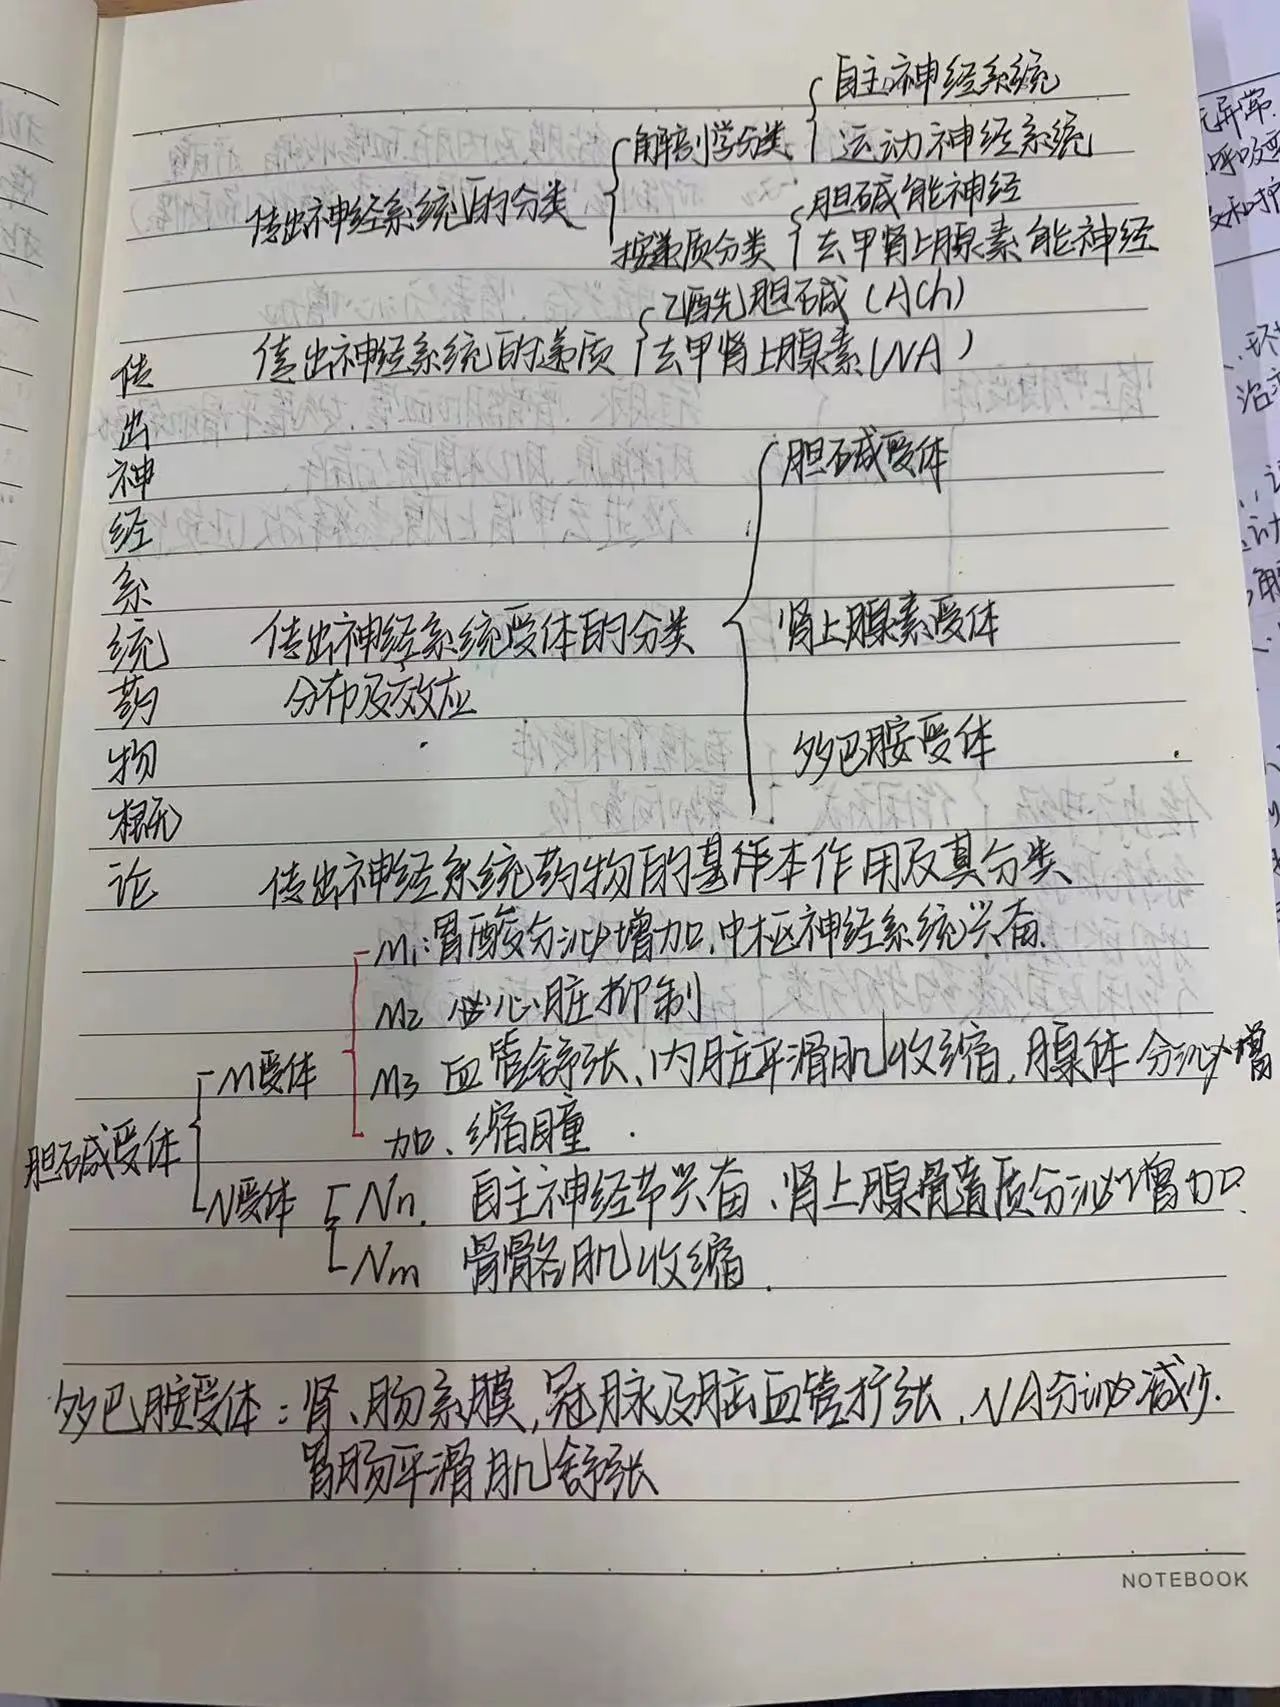 自主神经系统
解剖学分类
运动神经系统
传出神经系统的分类
胆碱能神经
按递质分类
去甲肾上腺素能神经
乙酰胆碱(ACh)
传出神经系统的递质
去甲肾上腺素(NA)
传出神经系统药物概论
胆碱受体
肾上腺素受体
传出神经系统受体的分类
分布及效应
多巴胺受体
传出神经系统药物的基本作用及其分类
M1:胃酸分泌增加.中枢神经系统兴奋.
M2 心脏抑制
M受体
M3 血管舒张、内脏平滑肌收缩,腺体分泌增
加、缩瞳.
胆碱受体
N受体
Nn. 自主神经节兴奋、肾上腺髓质分泌增加.
Nm 骨骼肌收缩.
多巴胺受体:肾、肠系膜,冠脉及脑血管扩张、NA分泌减少.
胃肠平滑肌舒张
NOTEBOOK
元异常.
呼吸
和护
治